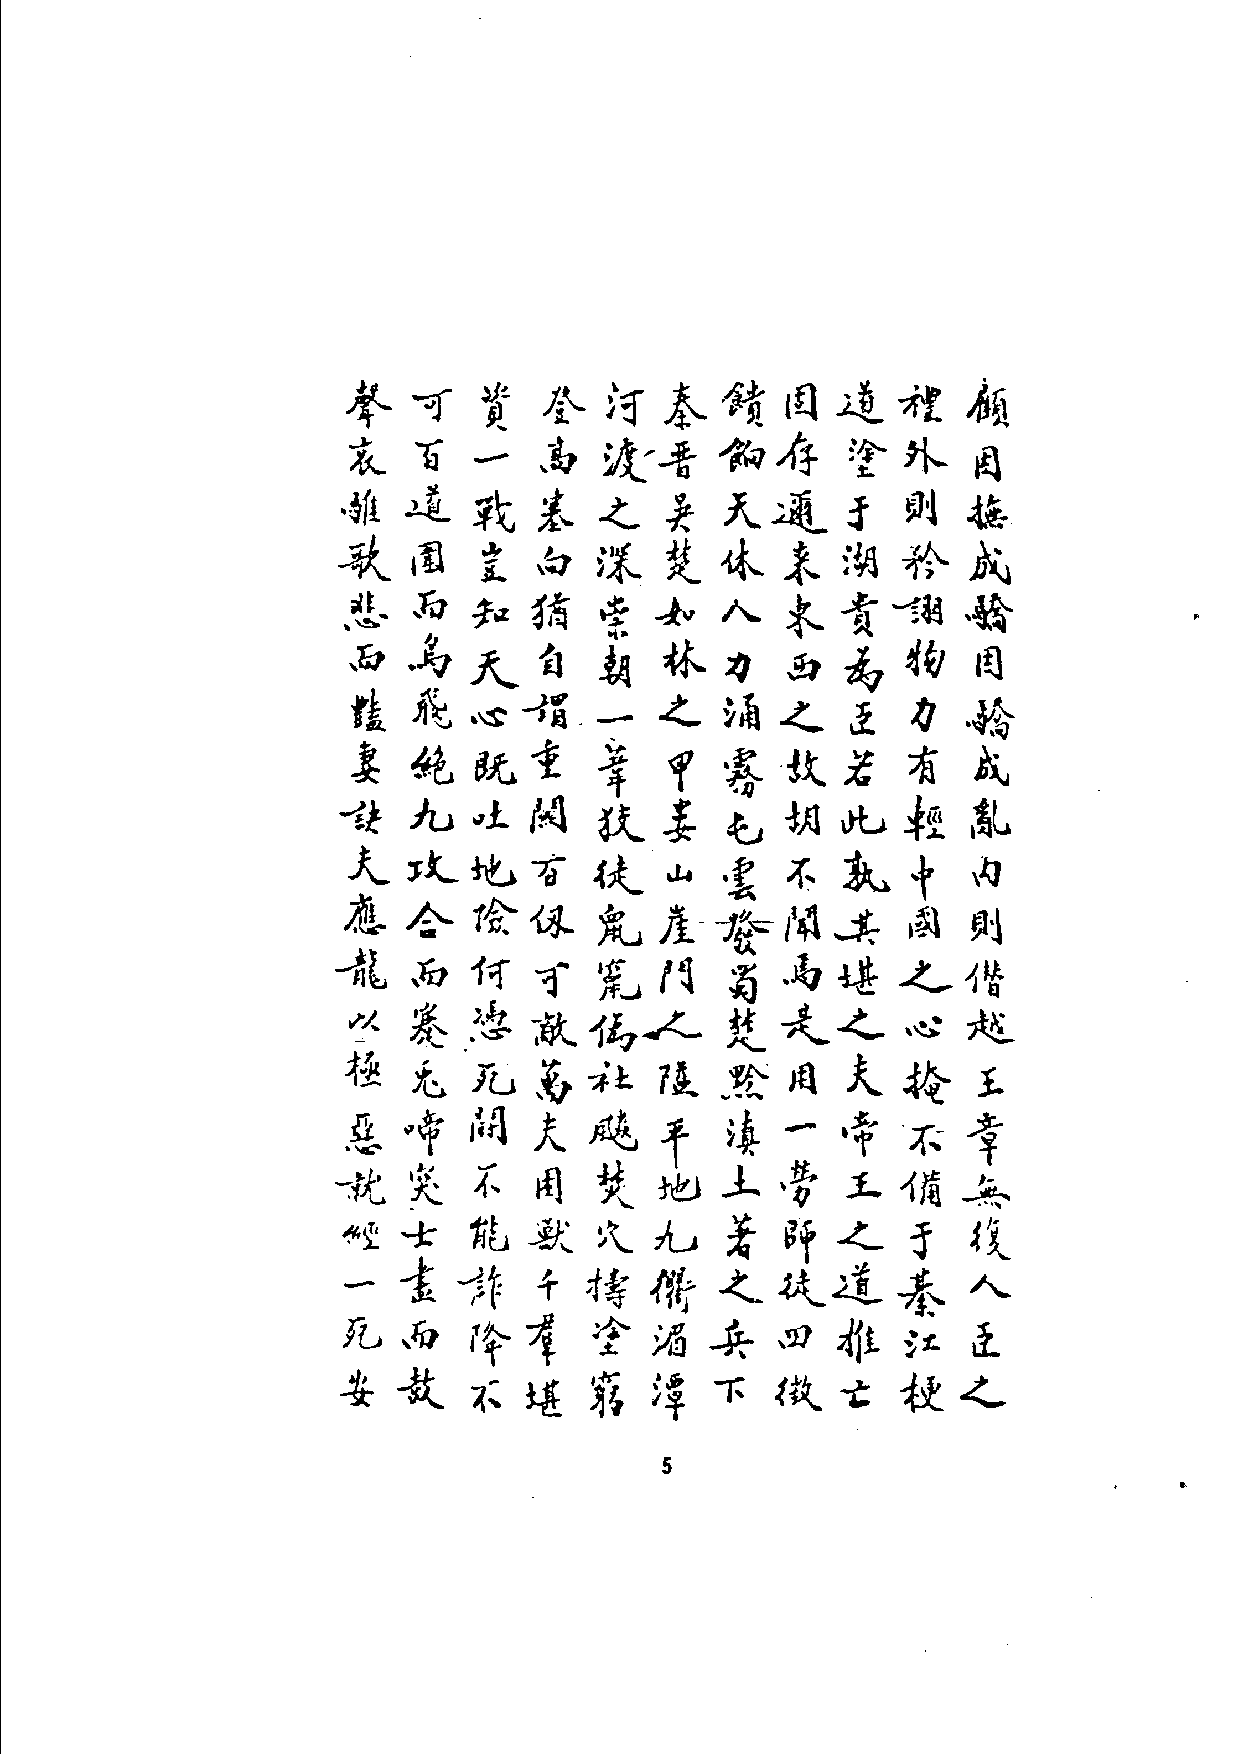 顧因撫成驕因驕成亂內則僭越王章無復人臣之
禮外則矜詡物力有輕中國之心掩不備于綦江梗
道塗于湖貴為臣若此孰其堪之夫帝王之道推亡
固存邇来東西之故胡不聞焉是用一勞師徒四徵
饋餉天休人力涌霧屯雲發蜀楚黔滇土著之兵下
秦晋吳楚如林之甲婁山崖門之隘平地九衢湄潭
河渡之深崇朝一葦狡徒鼠竄傴社飈焚穴擣塗窮
登高塞向猶自謂重關百仭可敵萬夫困獸千羣堪
資一戰豈知天心既吐地險何慿死鬭不能詐降不
可百道圍而鳥飛絶九攻合而塞兎啼突士盡而鼓
聲哀騅歌悲而豔妻訣夫應龍以極惡就經一死安
5